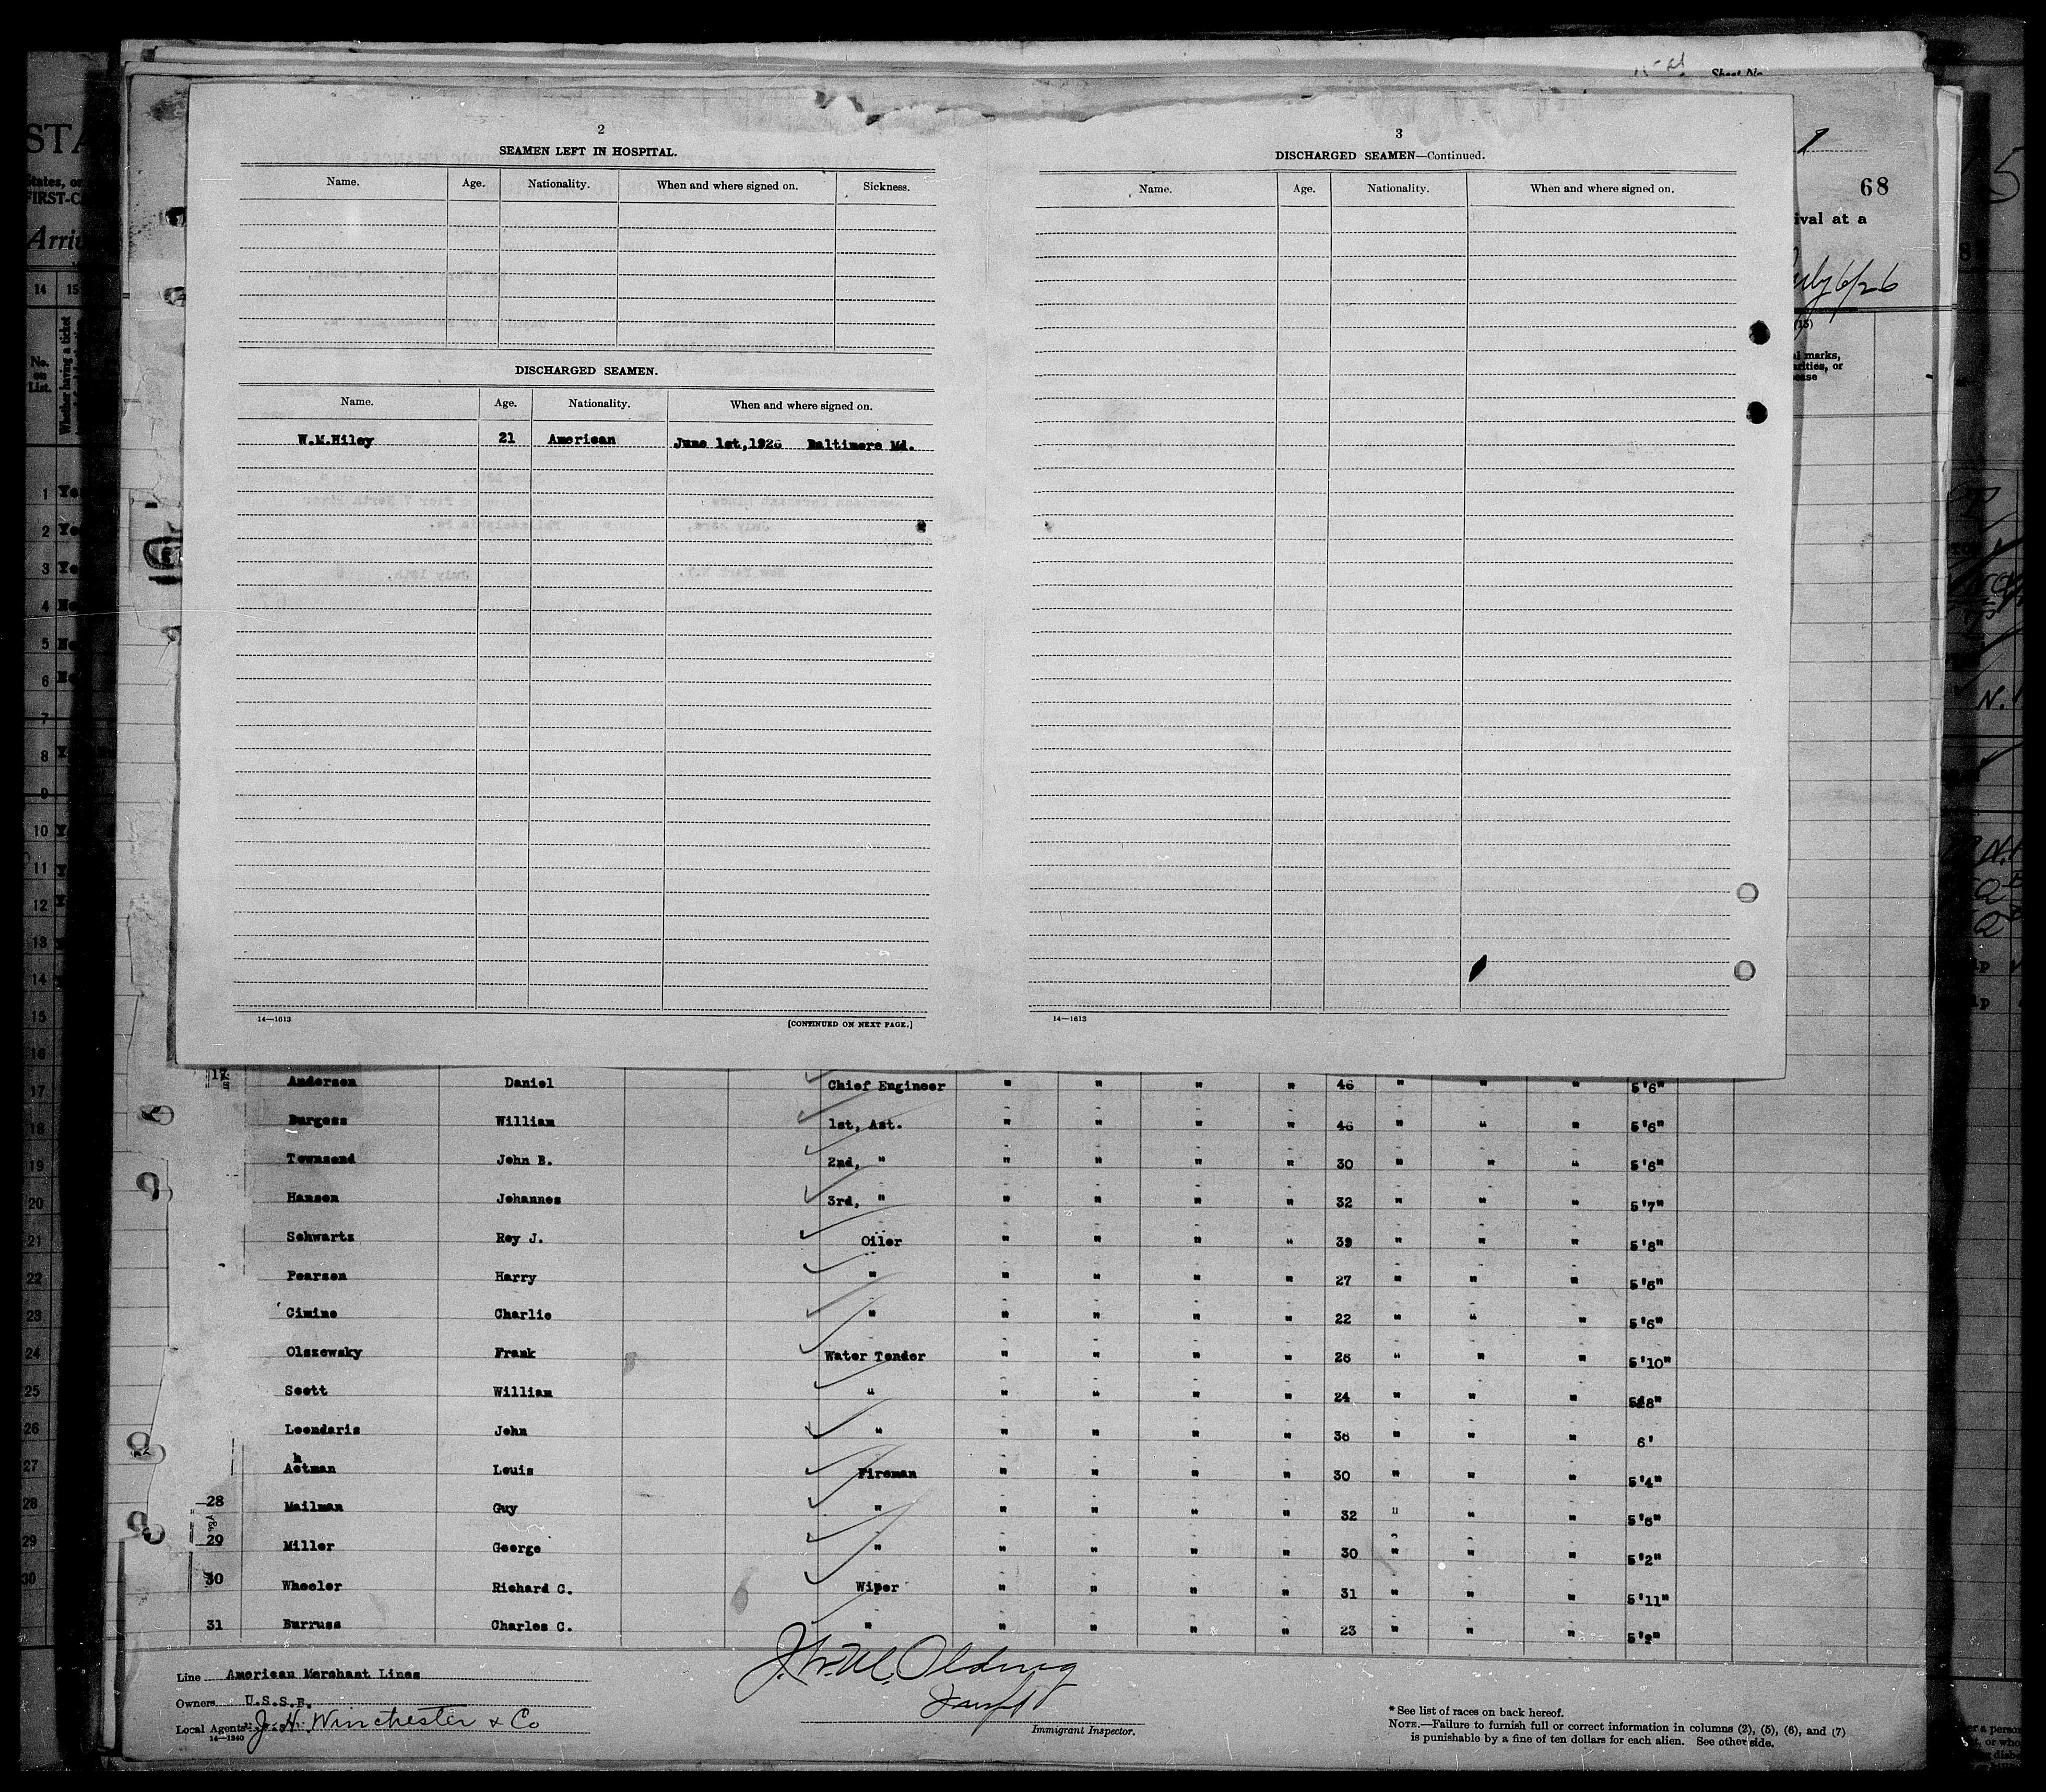 2
SEAMEN LEFT IN HOSPITAL.
Name. Age. Nationality. When and where signed on. Sickness.
DISCHARGED SEAMEN.
Name. Age. Nationality. When and where signed on.
W.M.Hiley 21 American June 1st,1926 Baltimore Md.
14—1613 [CONTINUED ON NEXT PAGE.]
3
DISCHARGED SEAMEN—Continued.
Name. Age. Nationality. When and where signed on.
14—1613
Sheet No.
1
68
ival at a
July 6/26
(15)
al marks,
arities, or
ease
STA
States, or
FIRST-C
Arriv
14 15
No. on List.
Whether having a ticket
1 Ye
2 Ye
3 Ye
4 No
5 No
6 No
7
8 Y
9
10 Y
11 Y
12 Y
13
14
15
16
17 Andersen Daniel Chief Engineer " " " " 46 " " " 5'6"
18 Burgess William 1st, Ast. " " " " 46 " " " 5'6"
19 Townsend John B. 2nd, " " " " " 30 " " " 5'6"
20 Hansen Johannes 3rd, " " " " " 32 " " " 5'7"
21 Schwartz Roy J. Oiler " " " " 39 " " " 5'8"
22 Pearson Harry " " " " " 27 " " " 5'6"
23 Cimino Charlie " " " " " 22 " " " 5'6"
24 Olszewsky Frank Water Tender " " " " 26 " " " 5'10"
25 Scott William " " " " " 24 " " " 5'8"
26 Leondaris John " " " " " 36 " " " 6'
27 Ahtman Louis Fireman " " " " 30 " " " 5'4"
28 Mailman Guy " " " " " 32 " " " 5'6"
29 Miller George " " " " " 30 " " " 5'2"
30 Wheeler Richard C. Wiper " " " " 31 " " " 5'11"
31 Burruss Charles C. " " " " " 23 " " " 5'2"
Line American Merchant Lines
Owners U.S.S.B.
Local Agents J.H. Winchester & Co
14—1240
Immigrant Inspector.
* See list of races on back hereof.
NOTE.—Failure to furnish full or correct information in columns (2), (5), (6), and (7)
is punishable by a fine of ten dollars for each alien. See other side.